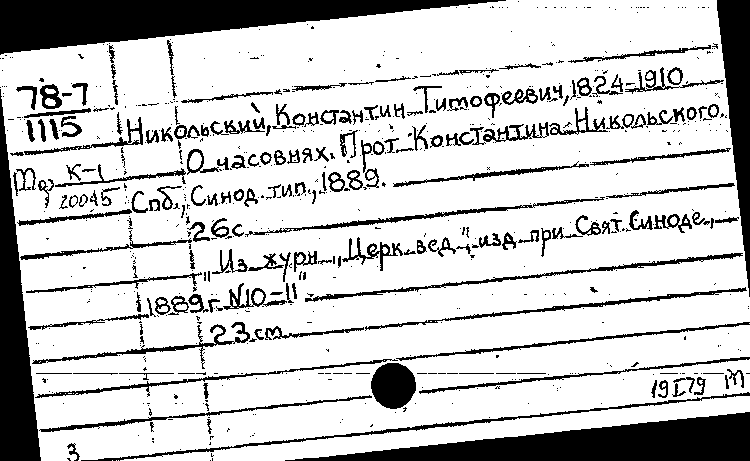 78-7
1115
Никольский, Константин Тимофеевич, 1824-1910
О часовнях. Прот. Константина Никольского.
К-1
20045
Спб., Синод. тип., 1889.
26с.
„Из журн. „Церк. вед.", изд. при Свят. Синоде,
1889г. N10-11"
23см
19 I 79 М
3